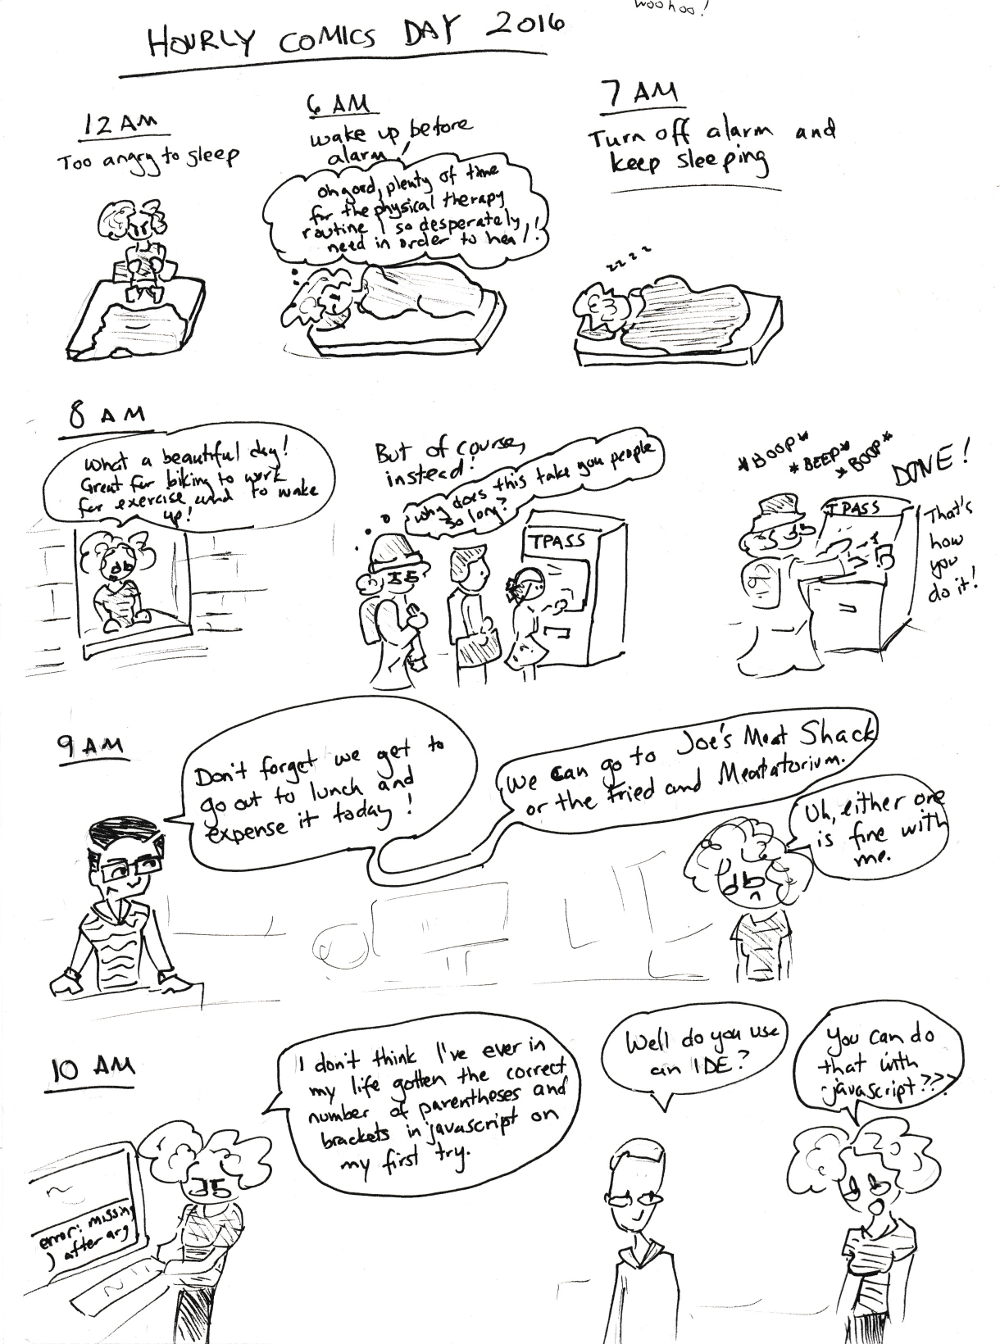 woohoo!
HOURLY COMICS DAY 2016
12 AM
Too angry to sleep
6 AM
wake up before
alarm
oh good, plenty of time
for the physical therapy
routine I so desperately
need in order to heal!!
7 AM
Turn off alarm and
keep sleeping
zzzz
8 AM
What a beautiful day!
Great for biking to work
for exercise and to wake
up!
But of course,
instead!
why does this take you people
so long?
TPASS
*BOOP*
*BEEP*
*BOOP*
DONE!
TPASS
That's
how
you
do it!
9 AM
Don't forget we get to
go out to lunch and
expense it today!
We can go to Joe's Meat Shack
or the Fried and Meatatorium.
Uh, either one
is fine with
me.
10 AM
I don't think I've ever in
my life gotten the correct
number of parentheses and
brackets in javascript on
my first try.
error: missing
) after arg
Well do you use
an IDE?
You can do
that with
javascript???